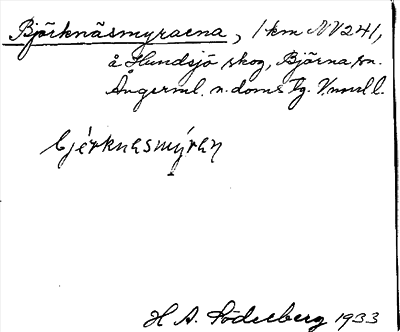 Björknäsmyrarna, 1 km NV 241,
å Hundsjö skog, Björna sn.
Ångerml. n. doms tg. Vnrrl l.
bjérknesmýran
H A. Söderberg 1933